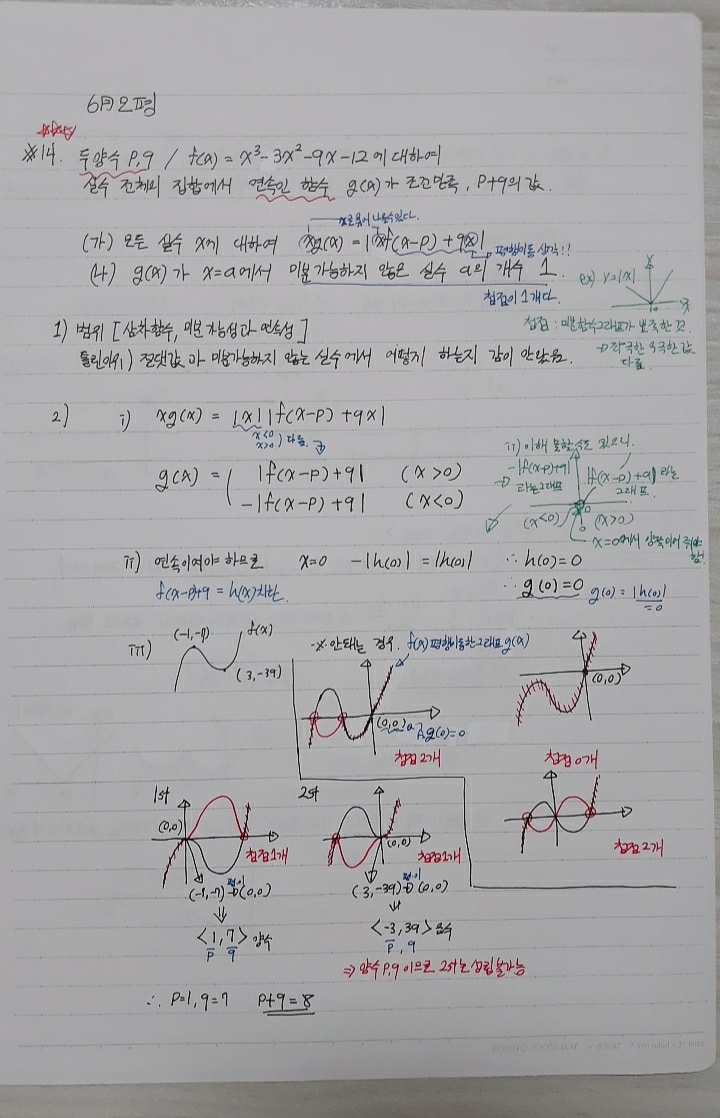 6月 모평
※14. 두 양수 P, q / f(x) = x³-3x²-9x-12 에 대하여
실수 전체의 집합에서 연속인 함수 g(x)가 조건만족, P+q의 값.
x로 묶어 나올수있다.
(가) 모든 실수 x에 대하여 xg(x) = |xf(x-p) + qx|
평행이동 생각!!
(나) g(x)가 x=a에서 미분가능하지 않은 실수 a의 개수 1.
첨점이 1개다.
ex) y=|x|
첨점 : 미분함수그래프가 뾰족한 것
→ 좌극한 우극한 값 다름
1) 범위 [삼차함수, 미분가능성과 연속성]
틀린이유) 절댓값과 미분가능하지 않는 실수에서 어떻게 하는지 감이 안잡음.
2) i) xg(x) = |x| |f(x-p) + q|
x<0
x>0 ) 다름.
g(x) = ( |f(x-p)+q| (x>0)
-|f(x-p)+q| (x<0)
ii) 이해 못할수도 있으니.
-|f(x-p)+q| 라는 그래프
|f(x-p)+q| 라는 그래프.
(x<0) 0 (x>0)
x=0에서 양쪽이어져야함!
ii) 연속이여야 하므로 x=0 -|h(0)| = |h(0)| ∴ h(0)=0
f(x-p)+q = h(x)치환. ∴ g(0)=0 g(0) = |h(0)| = 0
iii) (-1,-7) f(x)
(3,-39)
※ 안돼는 경우. f(x)평행이동한그래프 g(x)
(0,0) g(0)=0
첨점2개
(0,0)
첨점0개
1st
(0,0)
첨점1개
(-1,-7) 평이→ (0,0)
⇓
<1, 7> 양수
P q
2st
(0,0)
첨점1개
(3,-39) 평이→ (0,0)
⇓
<-3, 39> 음수
P, q
⇒ 양수 P, q 이므로 2st는 성립불가능
첨점2개
∴ P=1, q=7 P+q = 8